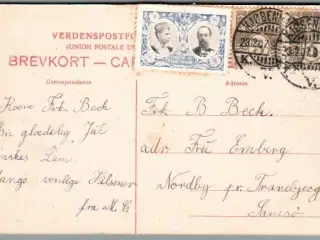 VERDENSPOSTFO
(UNION POSTALE U
BREVKORT — CA
Correspondance
Adresse
Kære Frk. Beck
glædelig Jul
ønskes Dem
Mange venlige Hilsener
fra M. C
Frk B Beck.
adr. Fru Emberg
Nordby pr. Tranebjerg
Samsø